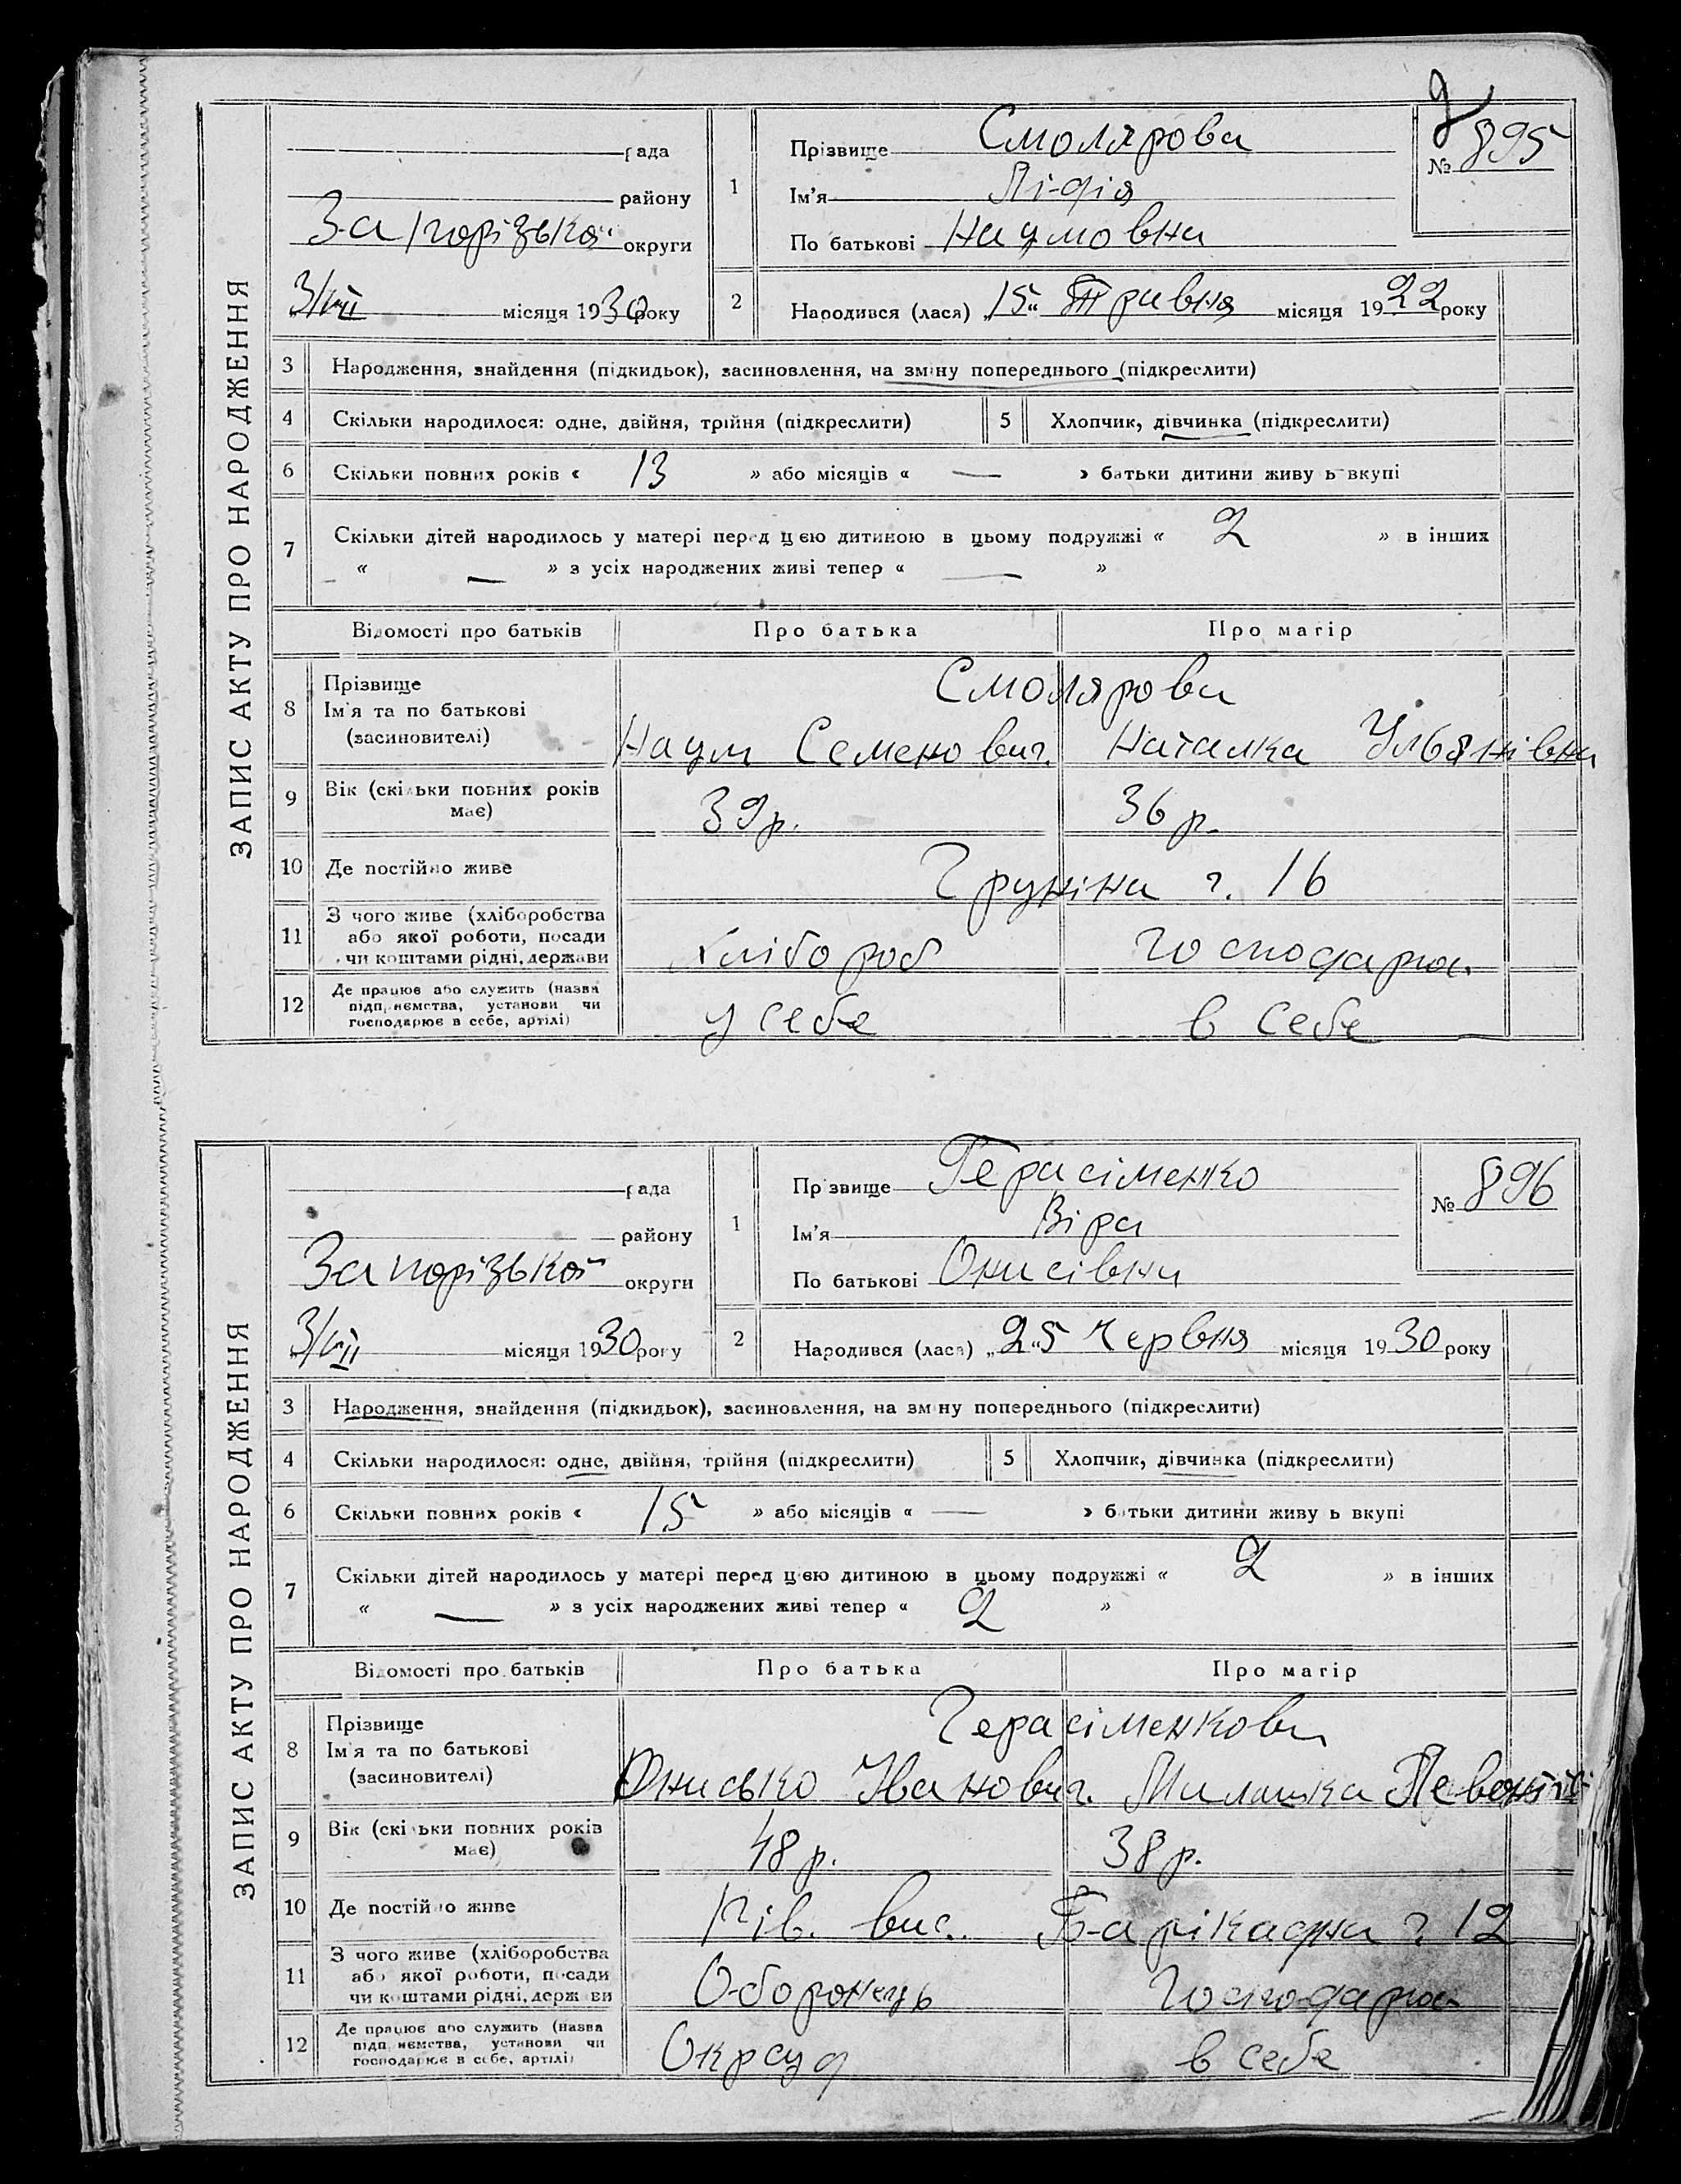 ЗАПИС АКТУ ПРО НАРОДЖЕННЯ
рада
району
Запорізької округи
3/VII місяця 1930 року
1
Прізвище Смолярова
Ім'я Лідія
По батькові Наумовна
№ 895
2
Народився (лася) „15“ Травня місяця 1922 року
3 Народження, знайдення (підкидьок), засиновлення, на зміну попереднього (підкреслити)
4 Скільки народилося: одне, двійня, трійня (підкреслити)
5 Хлопчик, дівчинка (підкреслити)
6 Скільки повних років « 13 » або місяців « — » батьки дитини живуть вкупі
7 Скільки дітей народилось у матері перед цією дитиною в цьому подружжі « 2 » в інших
« — » з усіх народжених живі тепер « — »
Відомості про батьків Про батька Про матір
8 Прізвище
Ім'я та по батькові
(засиновителі)
Смолярова
Наум Семенович. Наталка Улбянівна
9 Вік (скільки повних років
має)
39 р. 36 р.
10 Де постійно живе
Груніна ч. 16
11 З чого живе (хліборобства
або якої роботи, посади
чи коштами рідні, держави
хлібороб господарює.
12 Де працює або служить (назва
підприємства, установи чи
господарює в себе, артілі)
у себе в себе
ЗАПИС АКТУ ПРО НАРОДЖЕННЯ
рада
району
Запорізької округи
3/VII місяця 1930 року
1
Прізвище Герасіменко
Ім'я Віра
По батькові Онисівна
№ 896
2
Народився (лася) „25“ Червня місяця 1930 року
3 Народження, знайдення (підкидьок), засиновлення, на зміну попереднього (підкреслити)
4 Скільки народилося: одне, двійня, трійня (підкреслити)
5 Хлопчик, дівчинка (підкреслити)
6 Скільки повних років « 15 » або місяців « — » батьки дитини живуть вкупі
7 Скільки дітей народилось у матері перед цією дитиною в цьому подружжі « 2 » в інших
« — » з усіх народжених живі тепер « 2 »
Відомості про батьків Про батька Про матір
8 Прізвище
Ім'я та по батькові
(засиновителі)
Герасіменкови
Онисько Іванович. Милашка
9 Вік (скільки повних років
має)
48 р. 38 р.
10 Де постійно живе
Пів. вис. Барікадна ч. 12
11 З чого живе (хліборобства
або якої роботи, посади
чи коштами рідні, держави
Оборонець господарює
12 Де працює або служить (назва
підприємства, установи чи
господарює в себе, артілі)
Окрсуд в себе